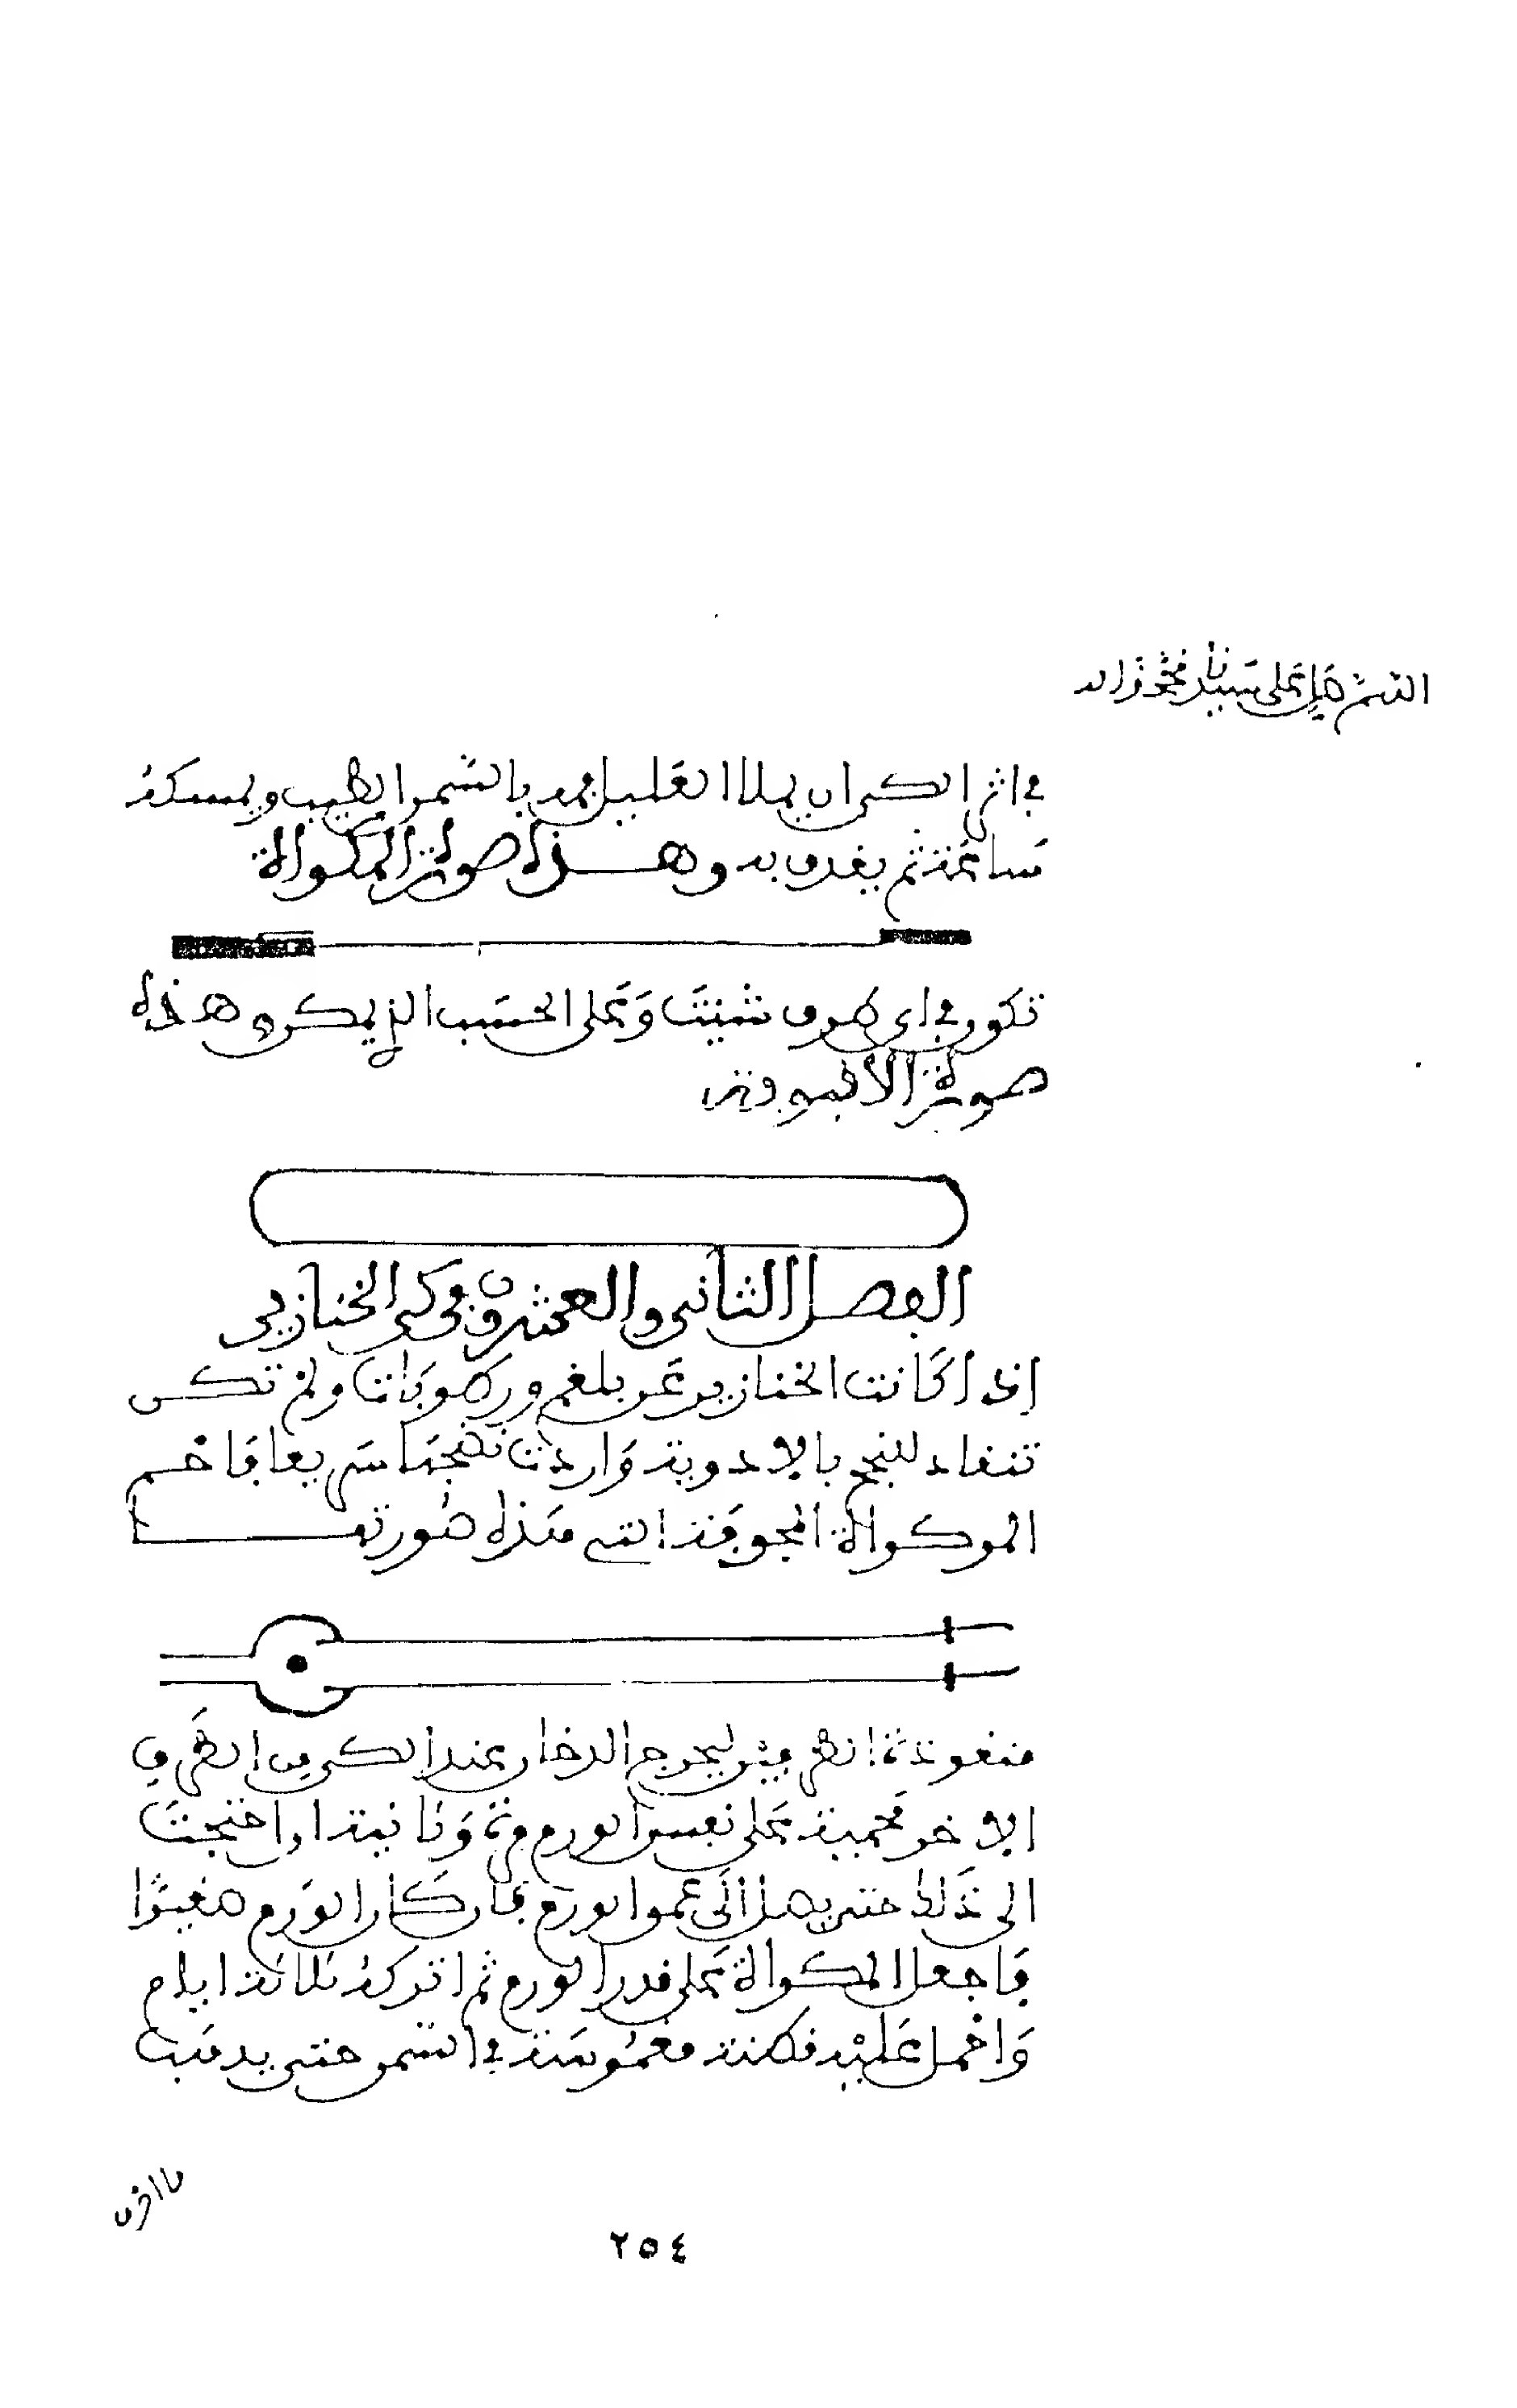 اللهم صل على سيدنا محمد واله
في اثر الكي ان يملا العليل فمه بالسمن الطيب ويمسكه
ساعة ثم يغرق به وهذه صورة المكواة
تكون في اي طرف شئت وعلى الحسب الذي يمكن وهذه
صورة الانبوبة
الفصل الثاني والعشرون في كي الخنازير
اذا كانت الخنازير عن بلغم ورطوبات ولم تكن
تنقاد للنضج بالادوية واردت نضجها سريعا فاحم
المكواة المجوفة التي هذه صورتها
منفوذة الطرفين ليخرج الدخان عند الكي من الطرف
الاخر محمية على نفس الورم مرة وثانية ان احتجت
الى ذلك حتى يصل الى عمق الورم فان كان الورم صغيرا
فاجعل المكواة على قدر الورم ثم اتركه ثلاثة ايام
واحمل عليه قطنة مغموسة في السمن حتى يذهب
ما احرق
٢٥٤